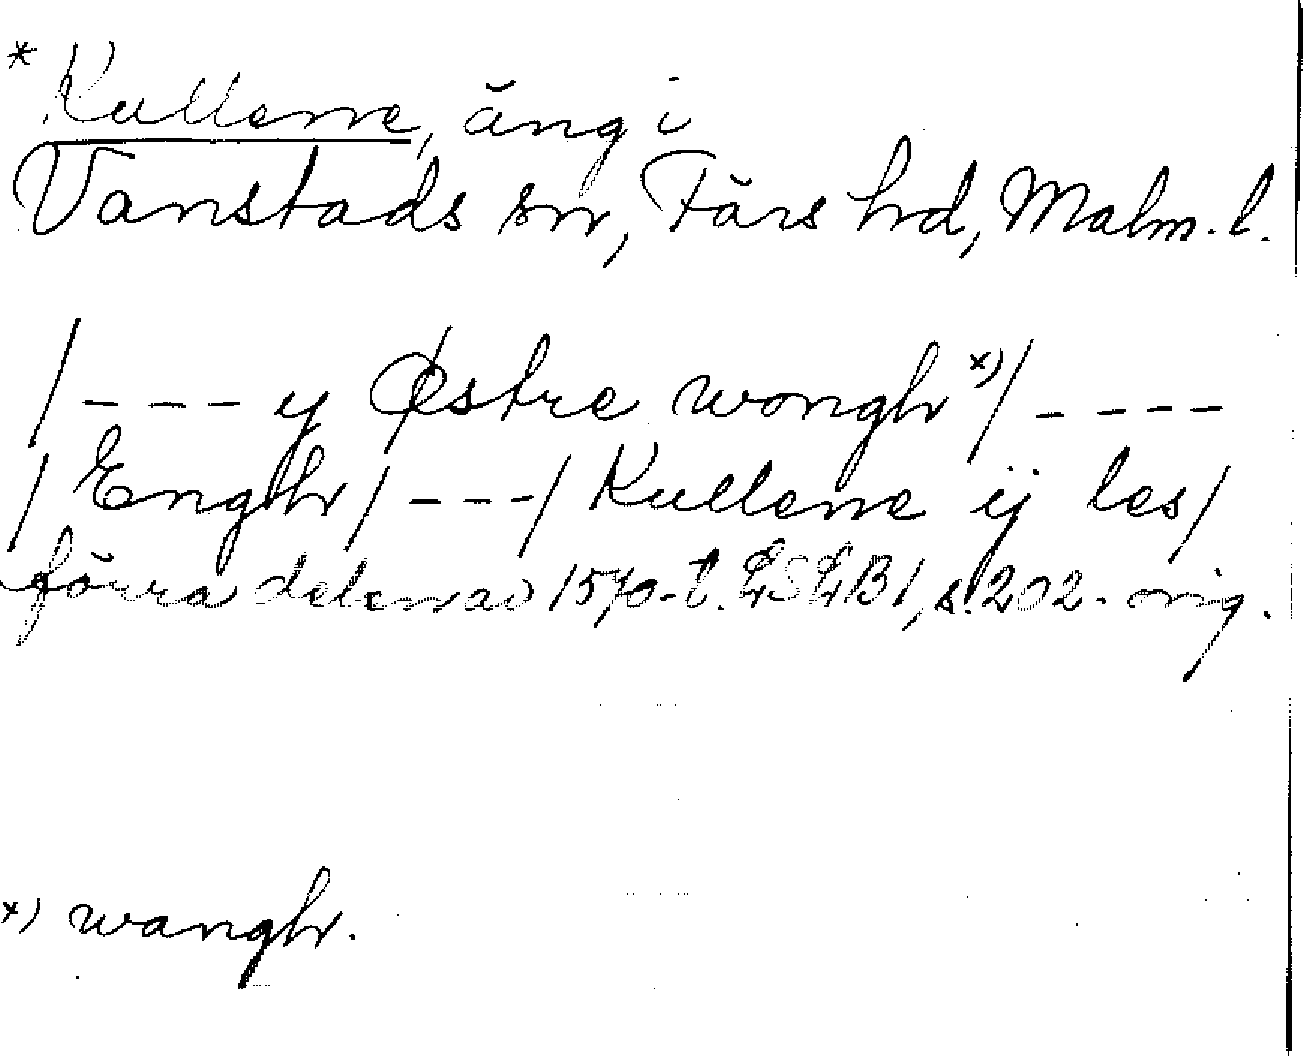 * Kullerne, äng i
Vanstads sn, Färs hd, Malm. l.
/ - - - y Østre wongh x) / - - - -
/ Engh / - - - / Kullerne ij les /
förra delen av 1570-t. LSLB 1, s. 202. orig.
x) wangh.